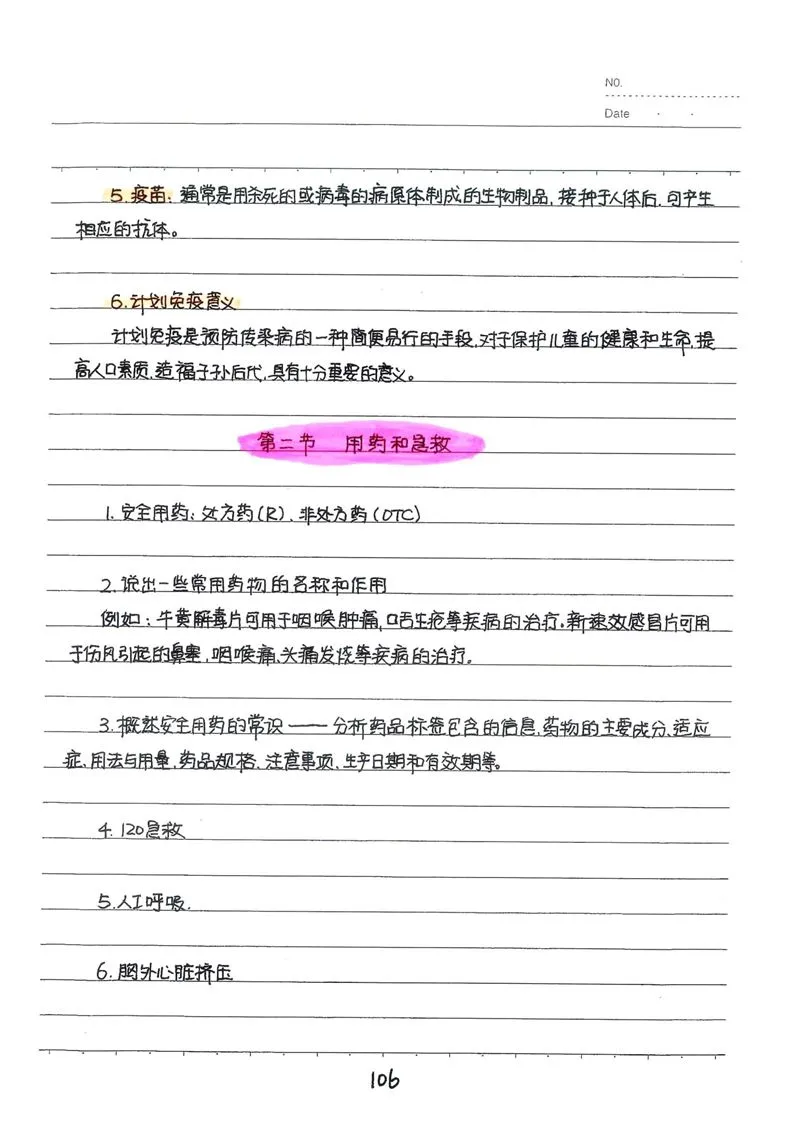 NO.
Date · ·
5.疫苗：通常是用杀死的或病毒的病原体制成的生物制品，接种于人体后，可产生
相应的抗体。
6.计划免疫意义
计划免疫是预防传染病的一种简便易行的手段，对于保护儿童的健康和生命，提
高人口素质，造福子孙后代，具有十分重要的意义。
第二节 用药和急救
1.安全用药：处方药(R)、非处方药(OTC)
2.说出一些常用药物的名称和作用
例如：牛黄解毒片可用于咽喉肿痛，口舌生疮等疾病的治疗。新速效感冒片可用
于伤风引起的鼻塞，咽喉痛、头痛发烧等疾病的治疗。
3.概述安全用药的常识——分析药品标签包含的信息，药物的主要成分、适应
症、用法与用量，药品规格、注意事项、生产日期和有效期等。
4.120急救
5.人工呼吸.
6.胸外心脏挤压
106